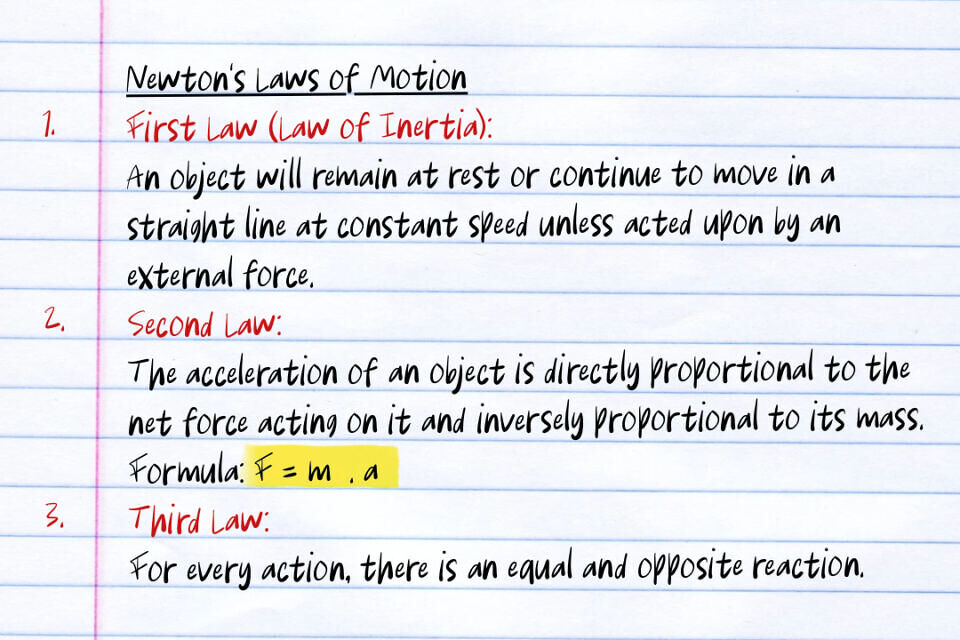 Newton's Laws of Motion
1. First Law (Law of Inertia):
An object will remain at rest or continue to move in a
straight line at constant speed unless acted upon by an
external force.
2. Second Law:
The acceleration of an object is directly proportional to the
net force acting on it and inversely proportional to its mass.
Formula: F = m . a
3. Third Law:
For every action, there is an equal and opposite reaction.